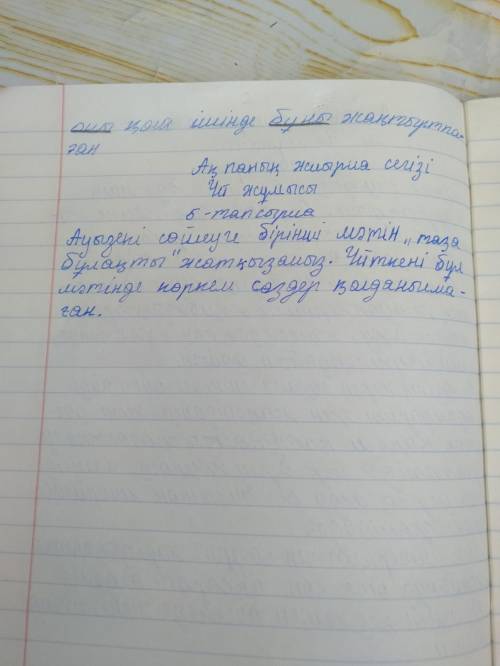 оны қоға ішінде буны жаңғыртпа-
ған
Ақпаның жиырма сегізі
Үй жұмысы
5-тапсырма
Ауызекі сөйлеуге бірінші мәтін "таза
бұлақты" жатқызамыз. Үйткені бұл
мәтінде көркем сөздер қолданылма-
ған.